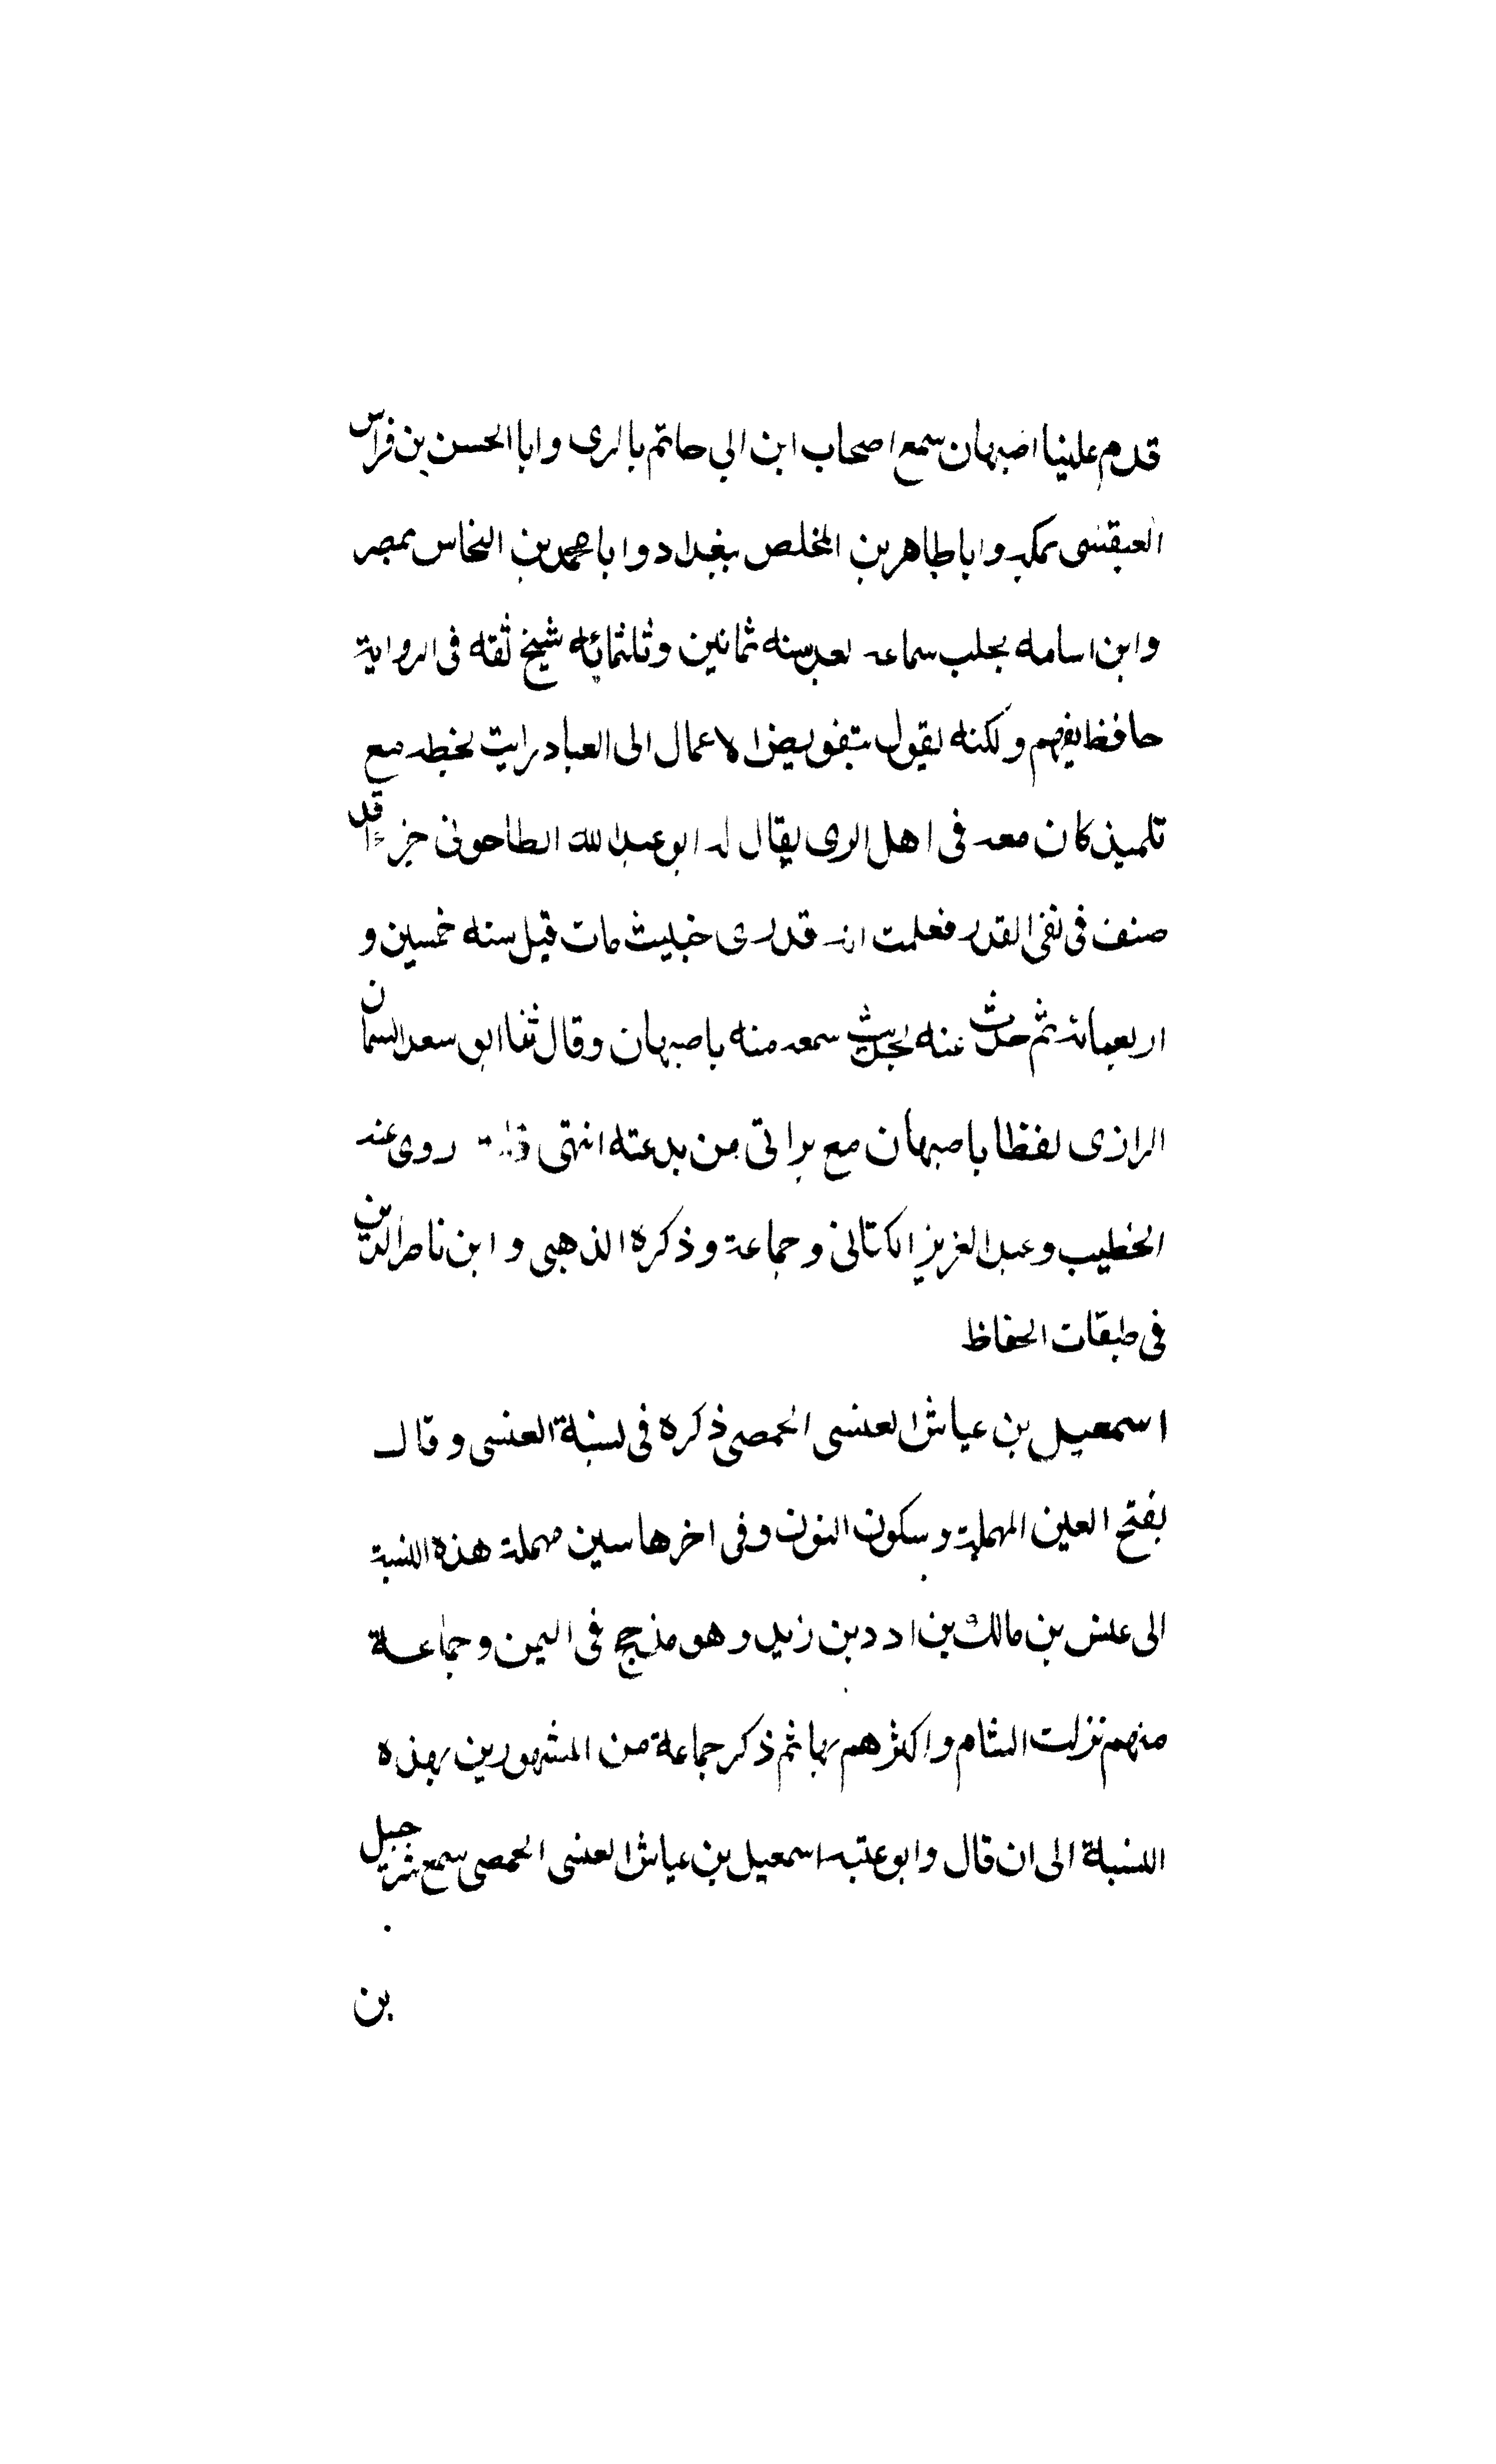 قدم علينا اصبهان سمع اصحاب ابن ابي حاتم بالرى وابا الحسن بن فراس
العبقسى بمكه وابا طاهر بن المخلص ببغداد وابا محمد بن النحاس بمصر
وابن اسامه بحلب سماعه بعد سنه ثمانين وثلثمائه شيخ ثقه فى الرواية
حافظ يفهم ولكنه يقول بتفويض الاعمال الى العباد رايت بخطه مع
تلميذ كان معه فى اهل الرى يقال له ابو عبد الله الطاحونى جزءا قد
صنف فى نفى القدر فعلمت انه قدرى خبيث مات قبل سنه خمسين و
اربعمائه ثم حدث عنه بحديث سمعه منه باصبهان وقال ثنا ابو سعد السمان
الرازى لفظا باصبهان مع براتى من بدعته انتهى قلت روى عنه
الخطيب وعبد العزيز الكتانى وجماعة وذكره الذهبى وابن ناصر الدين
فى طبقات الحفاظ
اسمعيل بن عياش العنسى الحمصى ذكره فى نسبة العنسى وقال
بفتح العين المهملة وسكون النون وفى اخرها سين مهملة هذه النسبة
الى عنس بن مالك بن ادد بن زيد وهو مذحج فى اليمن وجماعة
منهم نزلت الشام واكثرهم بها ثم ذكر جماعة من المشهورين بهذه
النسبة الى ان قال وابو عتبه اسمعيل بن عياش العنسى الحمصى سمع شرحبيل
بن